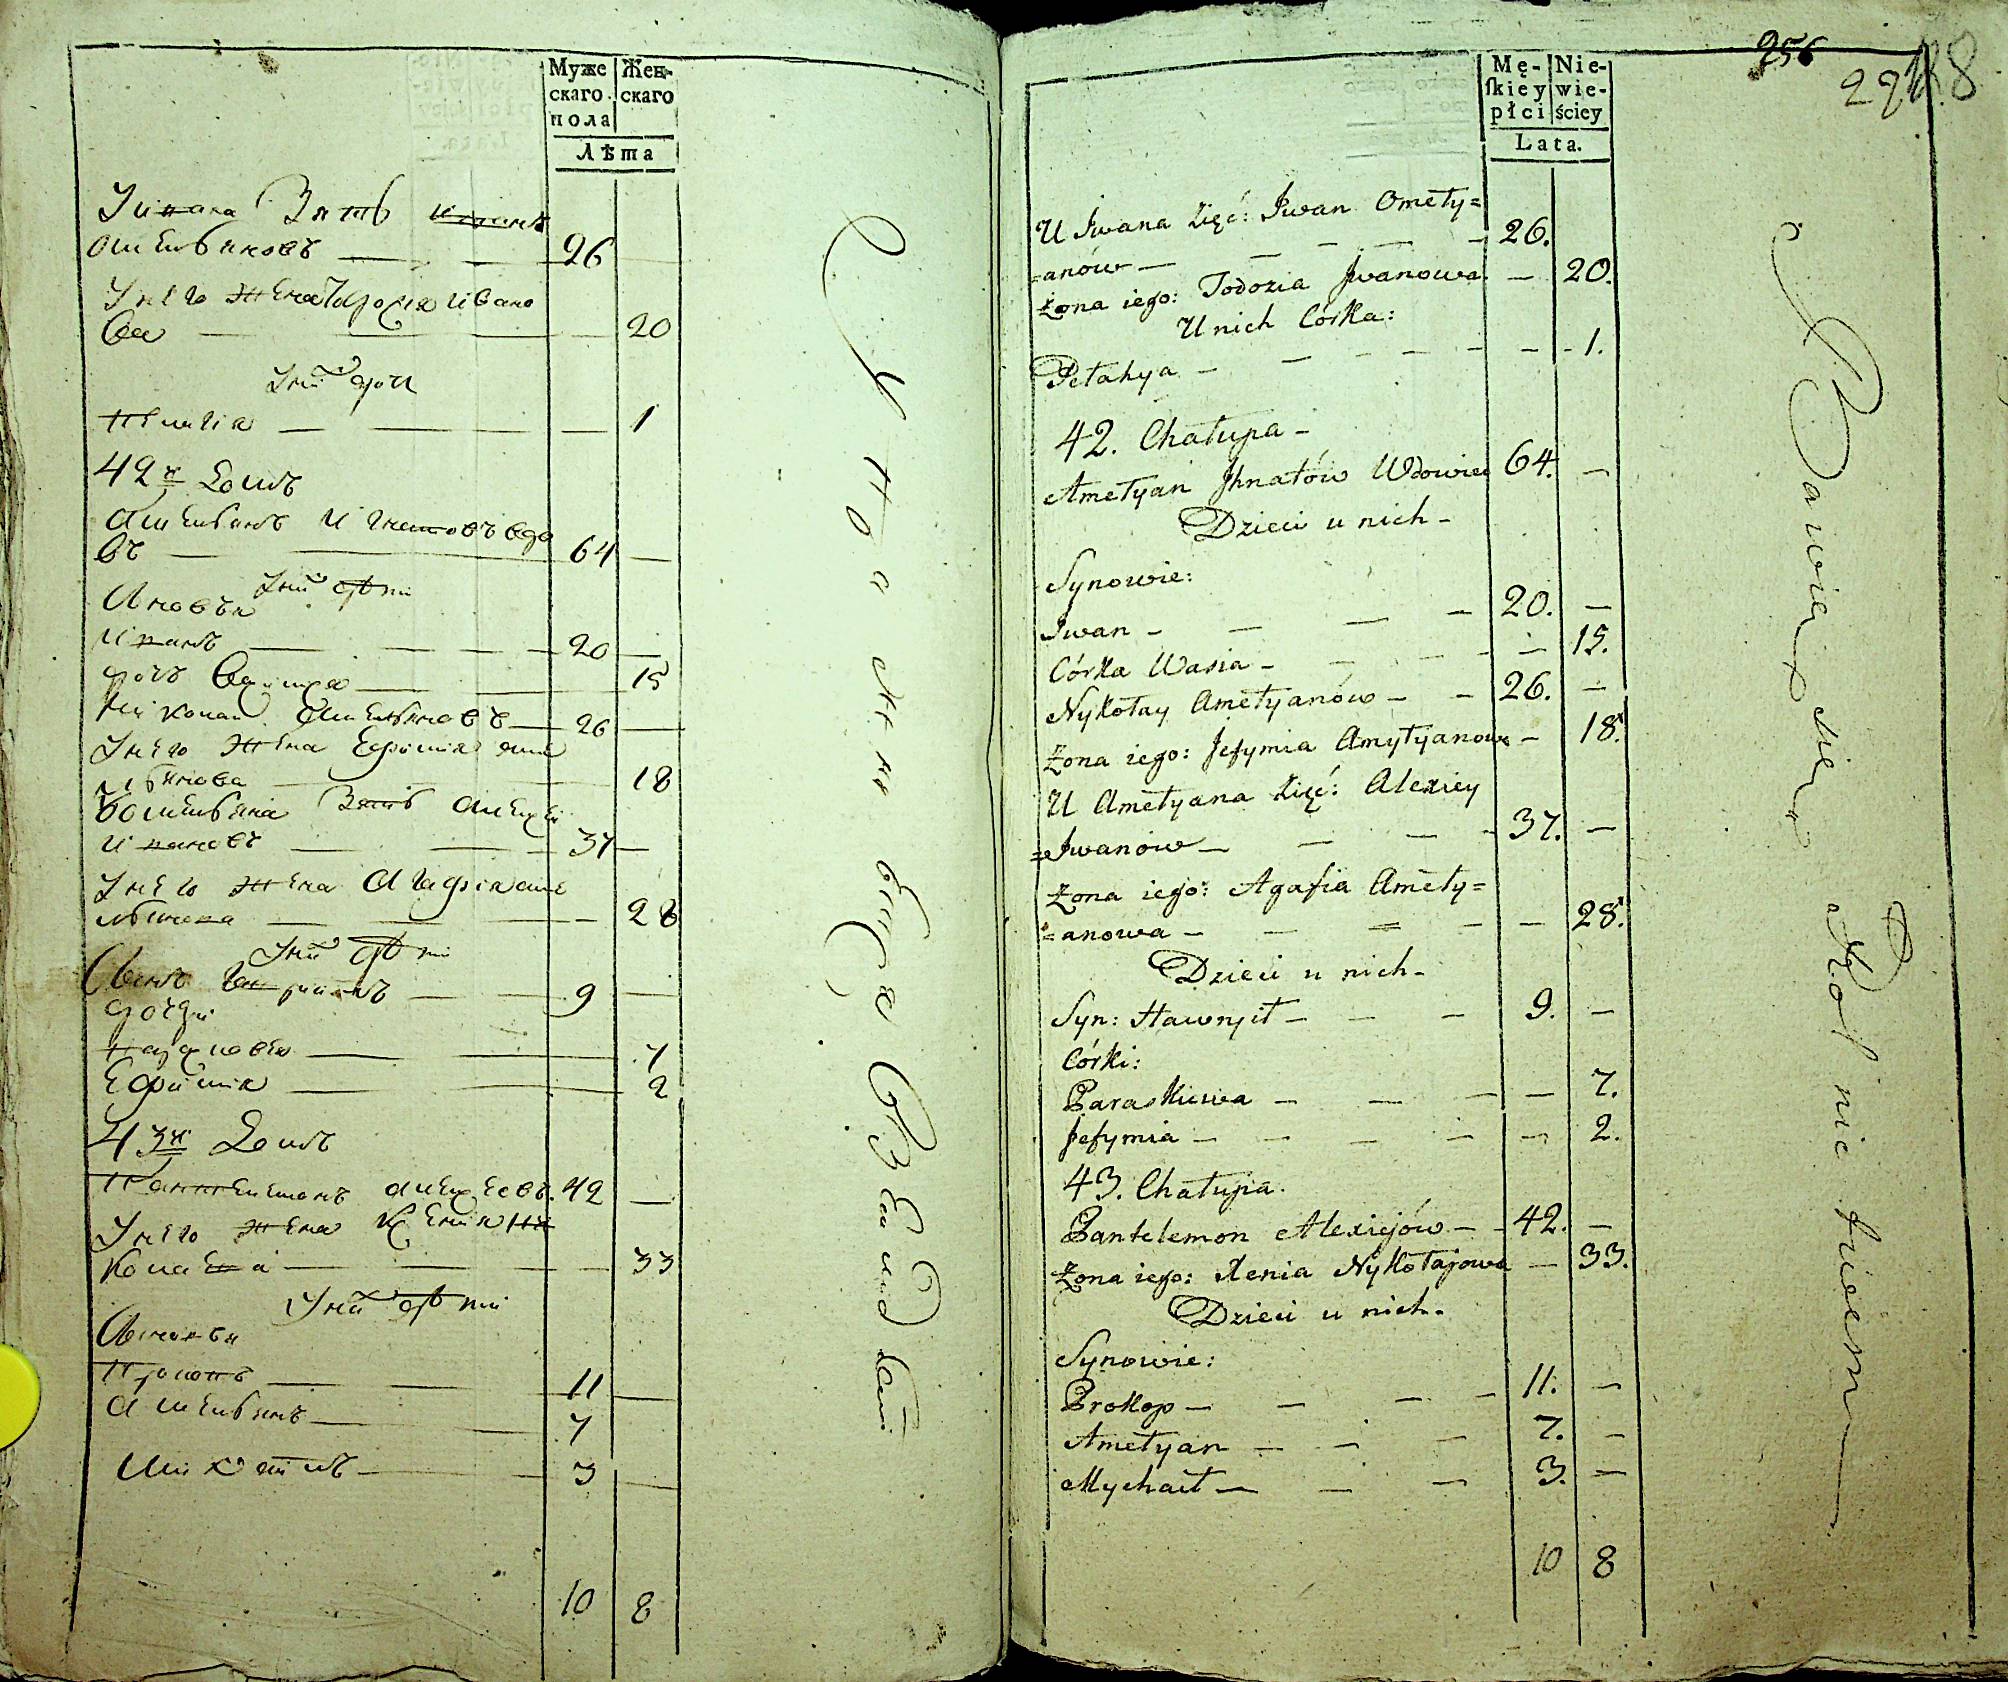 Муже
скаго
пола
Жен-
скаго
Лѣта
У ивана Зять иванъ
омельяновъ — 26
У него жена Тодосия ивано
ва — 20
У них дочь
Пелагия — 1
42й Домъ
Омельянъ Игнатовъ вдо
въ — 64 —
У них дѣти
Сыновья
иванъ — 20 —
дочь Василиса — 15
Николай Омельяновъ — 26 —
У него жена Ефимия оме
льянова — 18
У омельяна Зять алексѣй
ивановъ — 37 —
У него жена Агафия оме
льянова — 28
У них дѣти
Сынъ Гаврилъ — 9 —
дочери
Парасковья — 7
Ефимия — 2
43й Домъ
Пантелемонъ алексеевъ 42 —
У него жена Ксения Ни
колаева — 33
У них дѣти
Сыновья
Прокопъ — 11 —
Омельянъ — 7
Михайлъ — 3 —
10 8
256
Mę-
skiey
płci
Nie-
wie-
ściey
Lata.
U Jwana Zięć: Jwan Omeły=
=anów — 26.
Żona iego: Todozia Jwanowa — 20.
U nich Córka:
Pełahya — 1.
42. Chałupa —
Amełyan Jhnatów Wdowiec 64. —
Dzieci u nich —
Synowie:
Jwan — 20. —
Córka Wasia — 15.
Nykołay Amełyanów — 26. —
Żona iego: Jefymia Amyłyanowa — 18.
U Amełyana Zięć: Alexiey
=Jwanów — 37. —
Żona iego: Agafia Ameły=
=anowa — 28.
Dzieci u nich —
Syn: Hawryił — 9. —
Córki:
Paraskiewa — 7.
Jefymia — 2.
43. Chałupa.
Pantelemon Alexiejów — 42. —
Żona iego: Xenia Nykołajowa — 33.
Dzieci u nich —
Synowie:
Prokop — 11. —
Amełyan — 7. —
Mychaił — 3. —
10 8